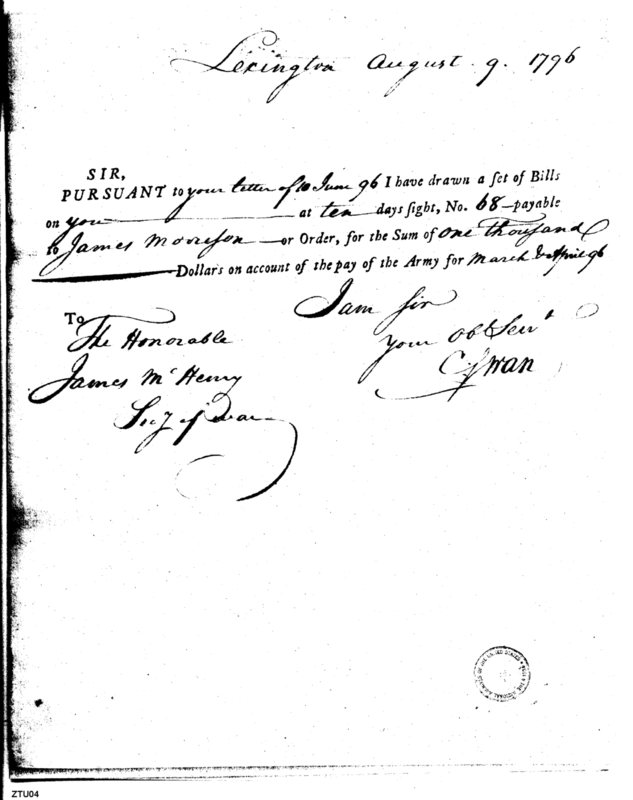 Lexington August 9. 1796
SIR,
PURSUANT to your letter of 10 June 96 I have drawn a ſet of Bills
on you at ten days ſight, No. 68 payable
to James Morrison or Order, for the Sum of one thousand
Dollars on account of the pay of the Army for March & April 96
I am Sir
your Obt Servt
C Swan
To
The Honorable
James McHenry
Secy of War
ZTU04